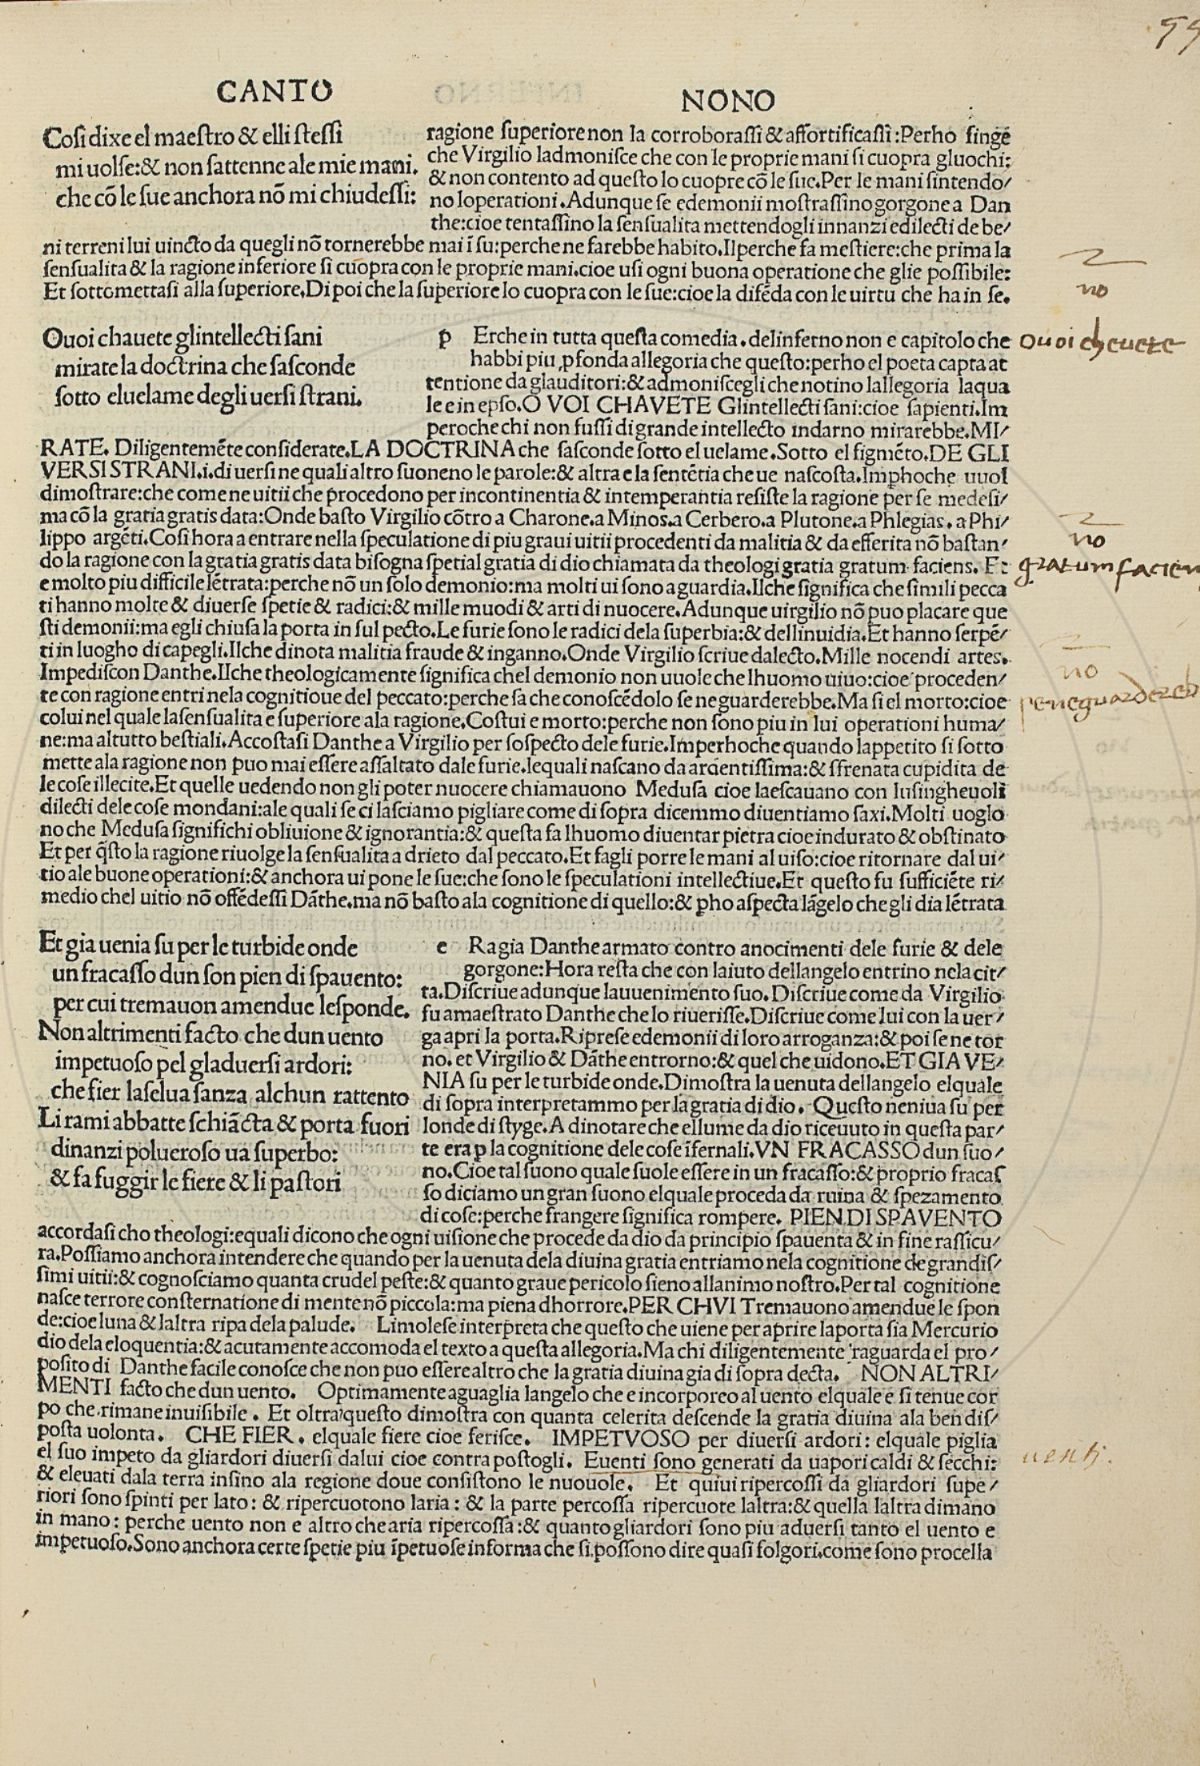 55
CANTO NONO
Cosi dixe el maestro & elli stessi
mi uolse:& non sattenne ale mie mani.
che cō le sue anchora nō mi chiudessi:
ragione superiore non la corroborassi & affortificassi:Perho finge
che Virgilio ladmonisce che con le proprie mani si cuopra gluochi:
& non contento ad questo lo cuopre cō le sue.Per le mani sintendo/
no loperationi.Adunque se edemonii mostrassino gorgone a Dan
the:cioe tentassino la sensualita mettendogli innanzi edilecti de be/
ni terreni lui uincto da quegli nō tornerebbe mai ī su:perche ne farebbe habito.Ilperche fa mestiere:che prima la
sensualita & la ragione inferiore si cuopra con le proprie mani.cioe usi ogni buona operatione che glie possibile:
Et sottomettasi alla superiore.Di poi che la superiore lo cuopra con le sue:cioe la difēda con le uirtu che ha in se.
Ouoi chauete glintellecti sani
mirate la doctrina che sasconde
sotto eluelame degli uersi strani.
p Erche in tutta questa comedia.delinferno non e capitolo che
habbi piu ꝓfonda allegoria che questo:perho el poeta capta at
tentione da glauditori:& admoniscegli che notino lallegoria laqua
le e in epso.O VOI CHAVETE Glintellecti sani:cioe sapienti.Im
peroche chi non fussi di grande intellecto indarno mirarebbe.MI/
RATE. Diligentemēte considerate.LA DOCTRINA che sasconde sotto el uelame. Sotto el figmēto.DE GLI
VERSI STRANI.i.di uersi ne quali altro suoneno le parole:& altra e la sentētia che ue nascosta.Imphoche uuol
dimostrare:che come ne uitii che procedono per incontinentia & intemperantia resiste la ragione per se medesi/
ma cō la gratia gratis data:Onde basto Virgilio cōtro a Charone.a Minos.a Cerbero.a Plutone.a Phlegias.a Phi/
lippo argēti.Cosi hora a entrare nella speculatione di piu graui uitii procedenti da malitia & da efferita nō bastan/
do la ragione con la gratia gratis data bisogna spetial gratia di dio chiamata da theologi gratia gratum faciens. Et
e molto piu difficile lētrata:perche nō un solo demonio:ma molti ui sono a guardia.Ilche significa che simili pecca
ti hanno molte & diuerse spetie & radici:& mille muodi & arti di nuocere.Adunque uirgilio nō puo placare que
sti demonii:ma egli chiusa la porta in sul pecto.Le furie sono le radici dela superbia:& dellinuidia.Et hanno serpē/
ti in luogho di capegli.Ilche dinota malitia fraude & inganno.Onde Virgilio scriue dalecto.Mille nocendi artes.
Impediscon Danthe.Ilche theologicamente significa chel demonio non uuole che lhuomo uiuo:cioe proceden/
te con ragione entri nela cognitioue del peccato:perche sa che conoscēdolo se ne guarderebbe.Ma si el morto:cioe
colui nel quale la sensualita e superiore ala ragione.Costui e morto:perche non sono piu in lui operationi huma/
ne:ma altutto bestiali.Accostasi Danthe a Virgilio per sospecto dele furie.Imperhoche quando lappetito si sotto
mette ala ragione non puo mai essere assaltato dale furie.lequali nascano da ardentissima:& sfrenata cupidita de
le cose illecite.Et quelle uedendo non gli poter nuocere chiamauono Medusa cioe laescauano con lusingheuoli
dilecti dele cose mondani:ale quali se ci lasciamo pigliare come di sopra dicemmo diuentiamo saxi.Molti uoglo
no che Medusa significhi obliuione & ignorantia:& questa fa lhuomo diuentar pietra cioe indurato & obstinato
Et per q̄sto la ragione riuolge la sensualita a drieto dal peccato.Et fagli porre le mani al uiso:cioe ritornare dal ui/
tio ale buone operationi:& anchora ui pone le sue:che sono le speculationi intellectiue.Et questo fu sufficiēte ri/
medio chel uitio nō offēdessi Dāthe.ma nō basto ala cognitione di quello:& ꝑho aspecta lāgelo che gli dia lētrata
Et gia uenia su per le turbide onde
un fracasso dun son pien di spauento:
per cui tremauon amendue lesponde.
Non altrimenti facto che dun uento
impetuoso pel gladuersi ardori:
che fier la selua sanza alchun rattento
Li rami abbatte schiācta & porta fuori
dinanzi polueroso ua superbo:
& fa fuggir le fiere & li pastori
e Ra gia Danthe armato contro anocimenti dele furie & dele
gorgone:Hora resta che con laiuto dellangelo entrino nela cit/
ta.Discriue adunque lauuenimento suo.Discriue come da Virgilio
fu amaestrato Danthe che lo riuerisse.Discriue come lui con la uer/
ga apri la porta.Riprese edemonii di loro arroganza:& poi se ne tor
no. et Virgilio & Dāthe entrorno:& quel che uidono.ET GIA VE/
NIA su per le turbide onde.Dimostra la uenuta dellangelo elquale
di sopra interpretammo per la gratia di dio. Questo neniua su per
londe di styge.A dinotare che ellume da dio riceuuto in questa par/
te era ꝑ la cognitione dele cose īfernali.VN FRACASSO dun suo/
no.Cioe tal suono quale suole essere in un fracasso:& proprio fracas
so diciamo un gran suono elquale proceda da ruina & spezamento
di cose:perche frangere significa rompere. PIEN DI SPAVENTO
accordasi cho theologi:equali dicono che ogni uisione che procede da dio da principio spauenta & in fine rassicu/
ra.Possiamo anchora intendere che quando per la uenuta dela diuina gratia entriamo nela cognitione de grandis/
simi uitii:& cognosciamo quanta crudel peste:& quanto graue pericolo sieno allanimo nostro.Per tal cognitione
nasce terrore consternatione di mente nō piccola:ma piena dhorrore.PER CHVI Tremauono amendue le spon
de:cioe luna & laltra ripa dela palude. Limolese interpreta che questo che uiene per aprire laporta sia Mercurio
dio dela eloquentia:& acutamente accomoda el texto a questa allegoria.Ma chi diligentemente raguarda el pro/
posito di Danthe facile conosce che non puo essere altro che la gratia diuina gia di sopra decta. NON ALTRI/
MENTI facto che dun uento. Optimamente aguaglia langelo che e incorporeo al uento elquale e si tenue cor
po che.rimane inuisibile. Et oltra questo dimostra con quanta celerita descende la gratia diuina ala ben dis/
posta uolonta. CHE FIER. elquale fiere cioe ferisce. IMPETVOSO per diuersi ardori: elquale piglia
el suo impeto da gliardori diuersi dalui cioe contra postogli. Euenti sono generati da uapori caldi & secchi:
& eleuati dala terra insino ala regione doue consistono le nuouole. Et quiui ripercossi da gliardori supe/
riori sono spinti per lato: & ripercuotono laria: & la parte percossa ripercuote laltra:& quella laltra dimano
in mano: perche uento non e altro che aria ripercossa:& quanto gliardori sono piu aduersi tanto el uento e
impetuoso.Sono anchora certe spetie piu īpetuose informa che si.possono dire quasi folgori.come sono procella
no
Ouoi cheuete
no
gratum facien
no
seneguardereb
uenti.